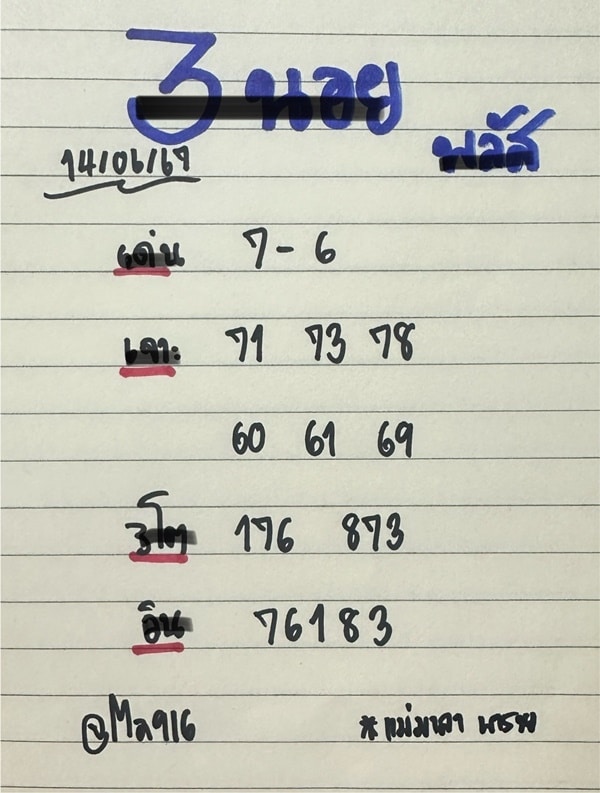 3 นอย
พลัส
14/06/69
เด่น 7 - 6
เจาะ 71 73 78
60 61 69
3โต 176 873
อิน 76183
*แม่มาลา พารวย